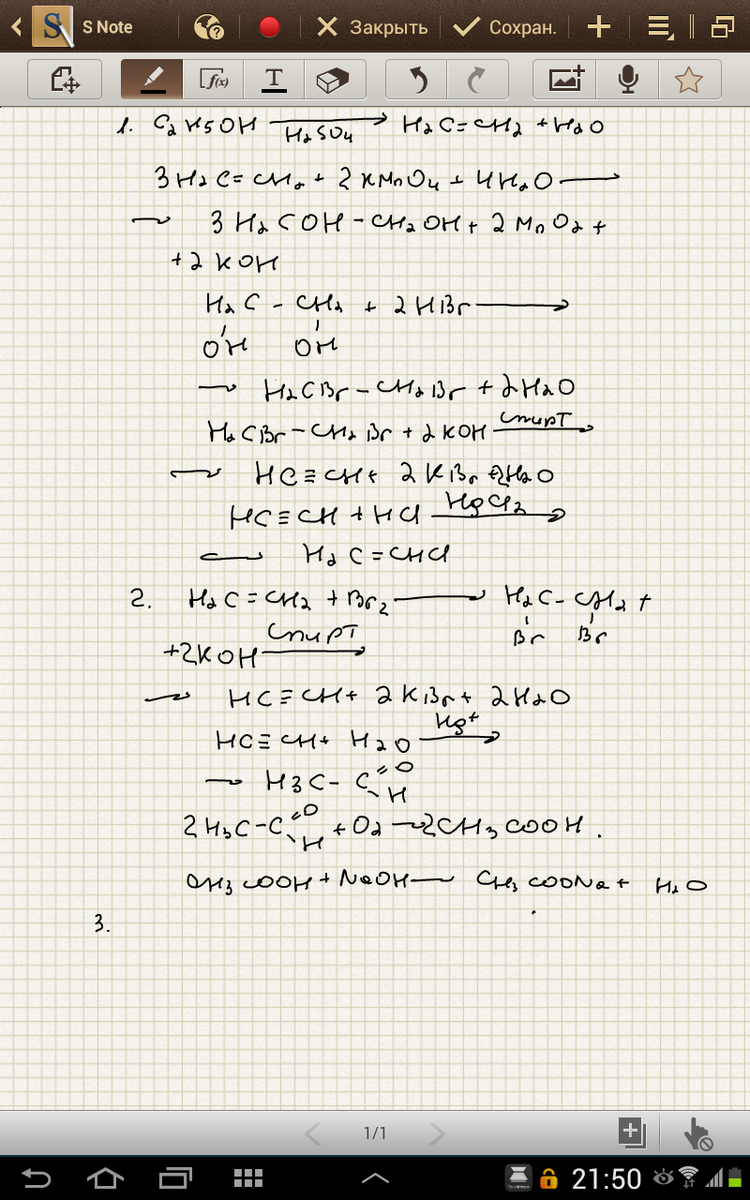 S Note
Закрыть
Сохран.
f(x)
T
1. C2H5OH → H2C=CH2 + H2O
H2SO4
3H2C=CH2 + 2KMnO4 + 4H2O →
→ 3H2COH-CH2OH + 2MnO2 +
+2KOH
H2C - CH2 + 2HBr →
OH OH
→ H2CBr-CH2Br + 2H2O
H2CBr-CH2Br + 2KOH спирт →
→ HC≡CH + 2KBr + 2H2O
HC≡CH + HCl HgCl2 →
→ H2C=CHCl
2. H2C=CH2 + Br2 → H2C-CH2 +
Br Br
+2KOH спирт →
→ HC≡CH + 2KBr + 2H2O
HC≡CH + H2O Hg+ →
→ H3C-C=O
H
2H3C-C=O + O2 → 2CH3COOH.
H
CH3COOH + NaOH — CH3COONa + H2O
3.
1/1
21:50